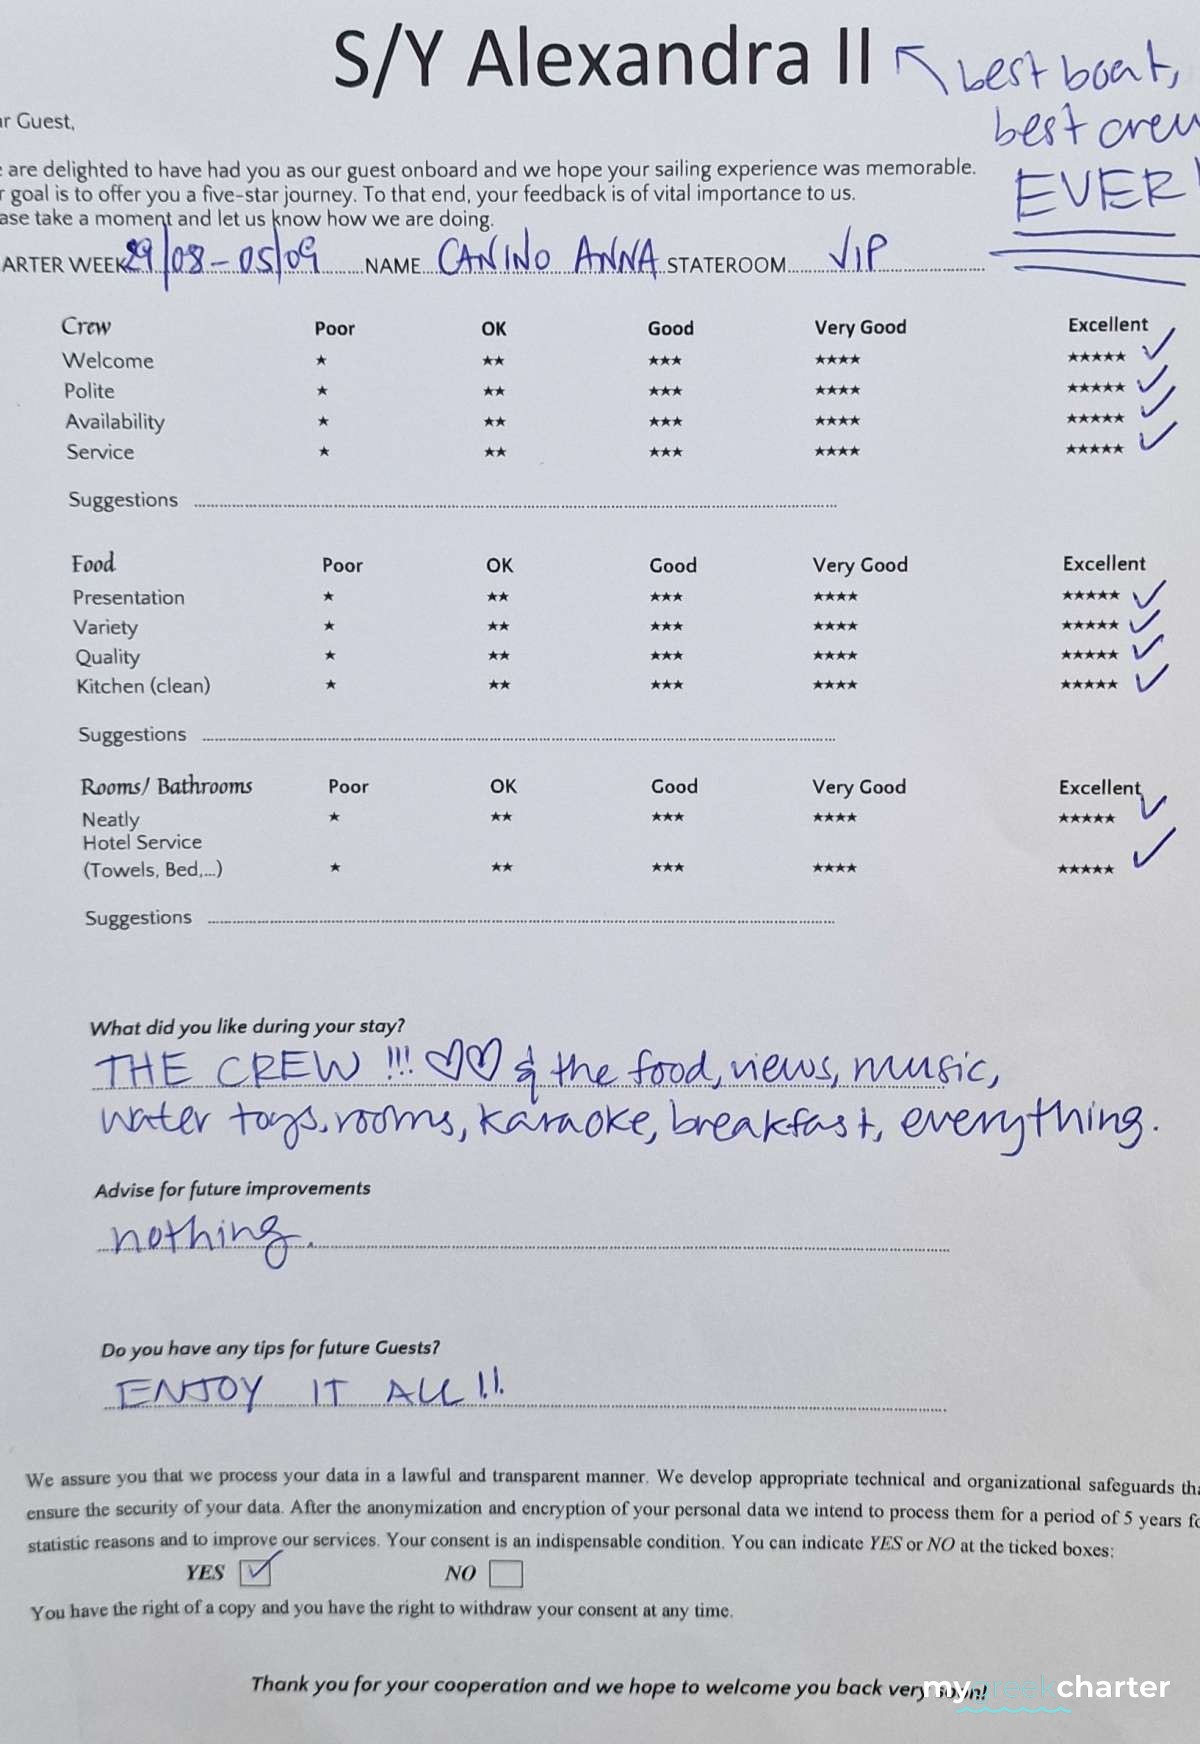 S/Y Alexandra II
best boat,
best crew
EVER!
ar Guest,
e are delighted to have had you as our guest onboard and we hope your sailing experience was memorable.
r goal is to offer you a five-star journey. To that end, your feedback is of vital importance to us.
ase take a moment and let us know how we are doing.
ARTER WEEK 29/08-05/09 NAME CANINO ANNA STATEROOM VIP
Crew Poor OK Good Very Good Excellent
Welcome ★ ★★ ★★★ ★★★★ ★★★★★ ✓
Polite ★ ★★ ★★★ ★★★★ ★★★★★ ✓
Availability ★ ★★ ★★★ ★★★★ ★★★★★ ✓
Service ★ ★★ ★★★ ★★★★ ★★★★★ ✓
Suggestions
Food Poor OK Good Very Good Excellent
Presentation ★ ★★ ★★★ ★★★★ ★★★★★ ✓
Variety ★ ★★ ★★★ ★★★★ ★★★★★ ✓
Quality ★ ★★ ★★★ ★★★★ ★★★★★ ✓
Kitchen (clean) ★ ★★ ★★★ ★★★★ ★★★★★ ✓
Suggestions
Rooms/ Bathrooms Poor OK Good Very Good Excellent
Neatly ★ ★★ ★★★ ★★★★ ★★★★★ ✓
Hotel Service
(Towels, Bed,...) ★ ★★ ★★★ ★★★★ ★★★★★ ✓
Suggestions
What did you like during your stay?
THE CREW !!! ♡♡ & the food, views, music,
water toys, rooms, karaoke, breakfast, everything.
Advise for future improvements
nothing.
Do you have any tips for future Guests?
ENJOY IT ALL!!
We assure you that we process your data in a lawful and transparent manner. We develop appropriate technical and organizational safeguards tha
ensure the security of your data. After the anonymization and encryption of your personal data we intend to process them for a period of 5 years fo
statistic reasons and to improve our services. Your consent is an indispensable condition. You can indicate YES or NO at the ticked boxes:
YES ✓ NO
You have the right of a copy and you have the right to withdraw your consent at any time.
Thank you for your cooperation and we hope to welcome you back very soon!
mygreekcharter